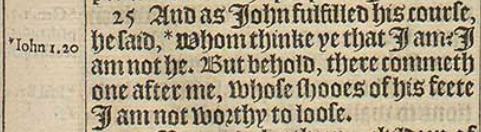 25 And as John fulfilled his course,
*Iohn 1.20 he said, *Whom thinke ye that I am? I
am not he. But behold, there commeth
one after me, whose shooes of his feete
I am not worthy to loose.